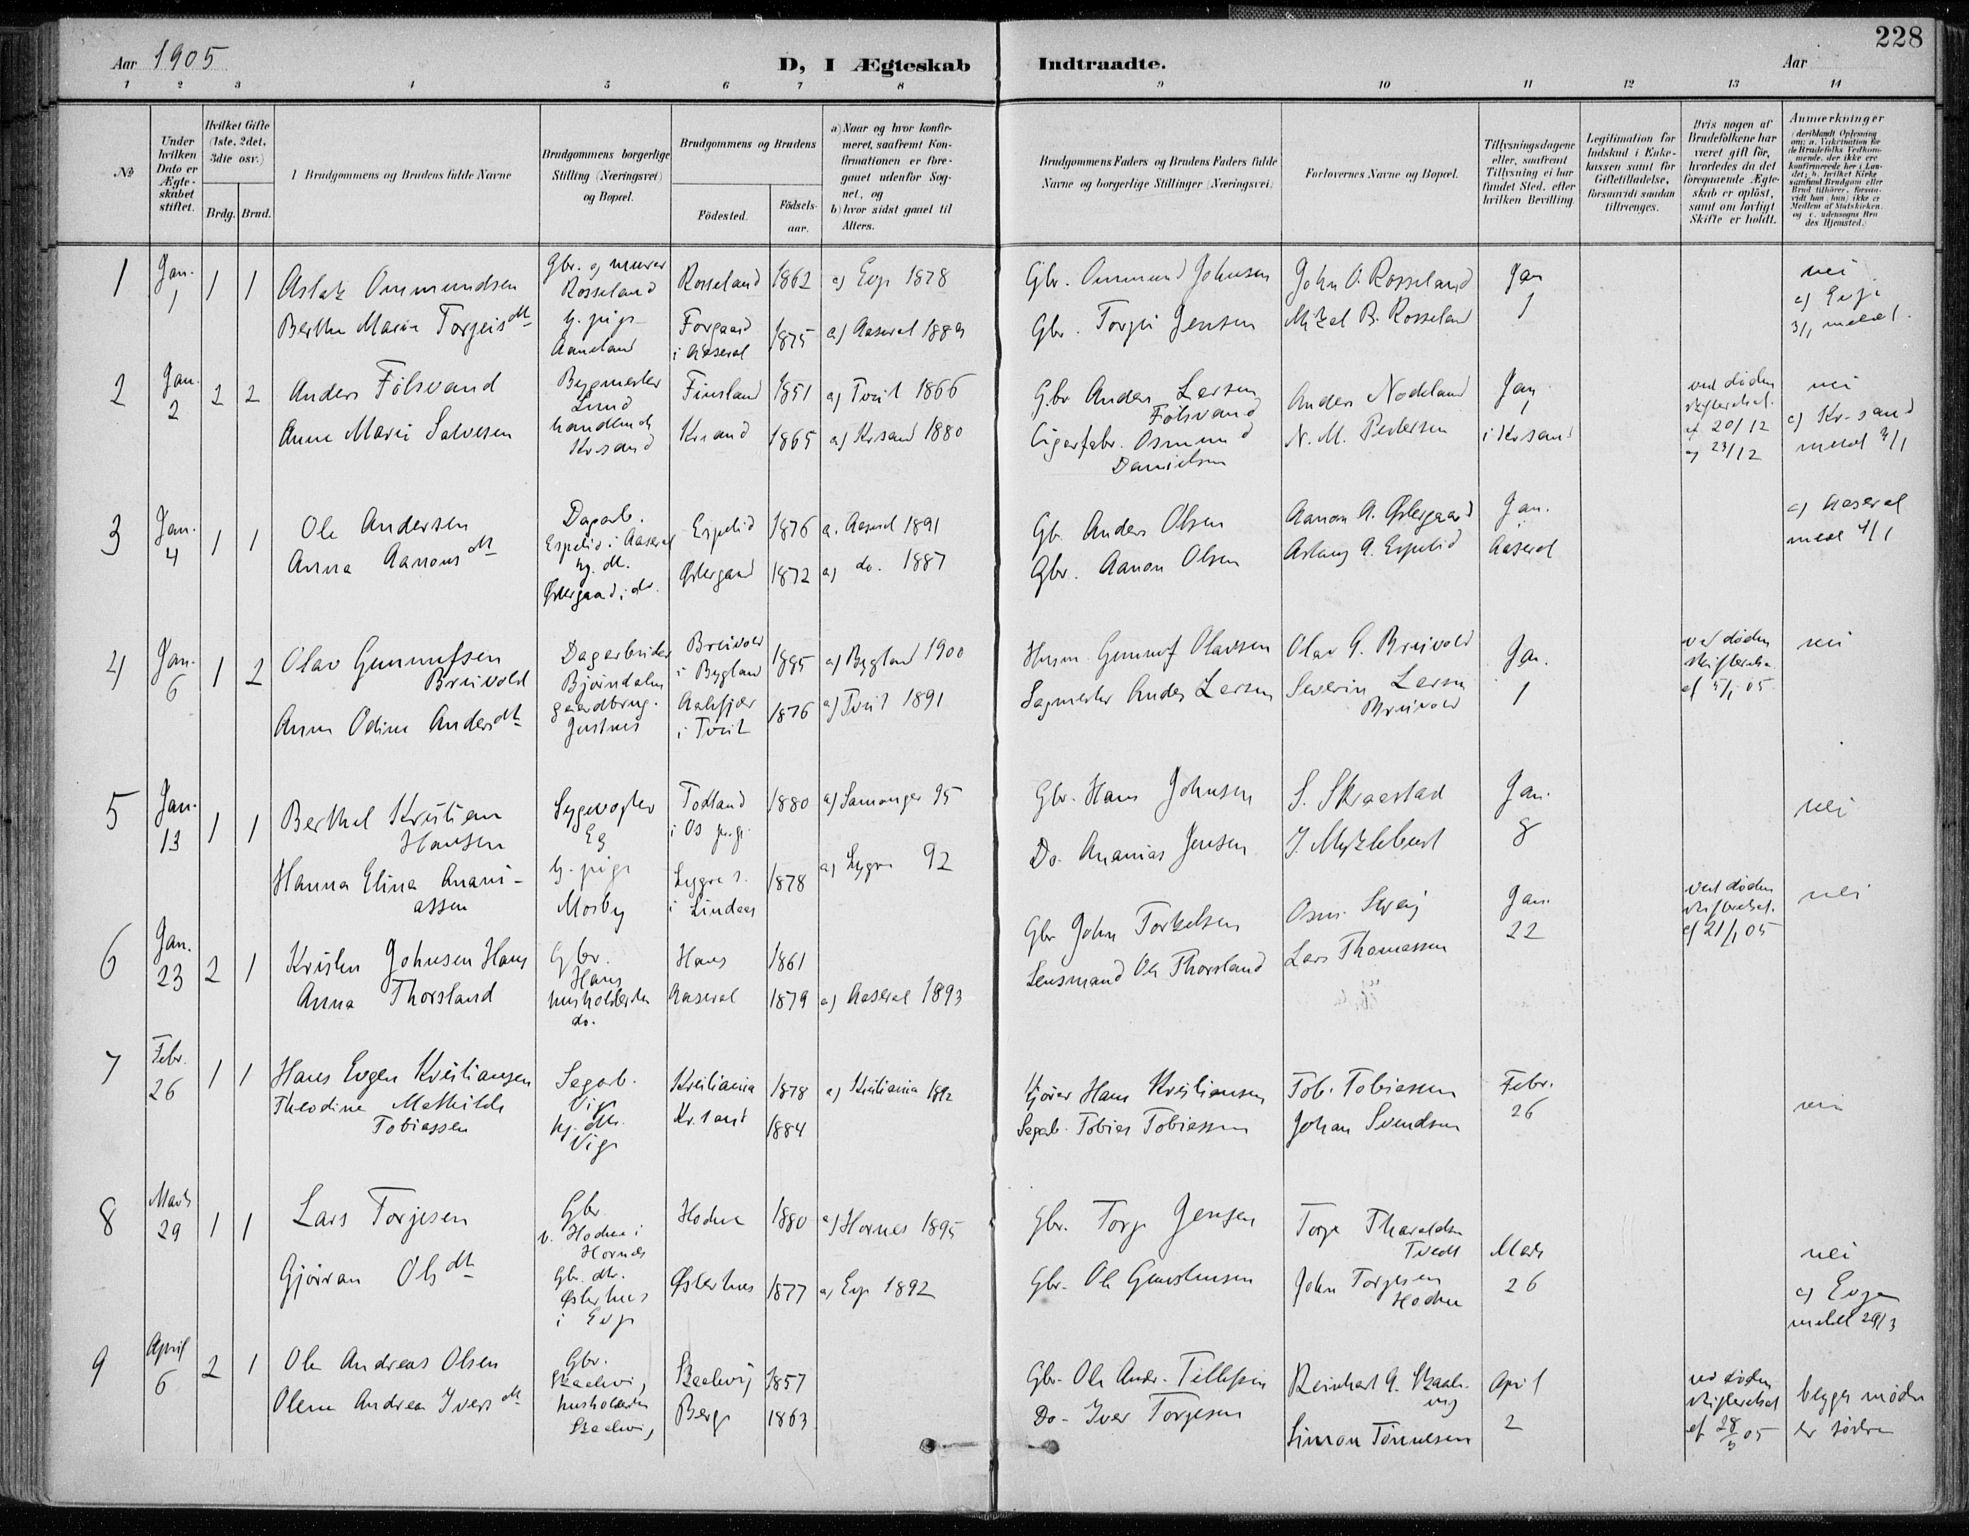 228
Aar 1905
D, I Ægteskab Indtraadte.
Aar
1 2 3 4 5 6 7 8 9 10 11 12 13 14
№
Under hvilken Dato er Ægteskabet stiftet.
Hvilket Gifte (1ste, 2det, 3die osv.)
Brdg. Brud.
Brudgommens og Brudens fulde Navne
Brudgommens borgerlige Stilling (Næringsvei) og Bopæl.
Brudgommens og Brudens
Födested.
Födsels-aar.
a) Naar og hvor konfirmeret, saafremt Konfirmationen er foregaaet udenfor Sognet, og
b) hvor sidst gaaet til Alters.
Brudgommens Faders og Brudens Faders fulde Navne og borgerlige Stillinger (Næringsvei)
Forlovernes Navne og Bopæl.
Tillysningsdagene eller, saafremt Tillysning ei har fundet Sted, efter hvilken Bevilling
Legitimation for Indskud i Enkekassen samt for Giftetilladelse, forsaavidt saadan tiltrænges.
Hvis nogen af Brudefolkene har været gift før, hvorledes da det foregaaende Ægteskab er opløst, samt om lovligt Skifte er holdt.
Anmærkninger
1 Jan. 1 1 1
Aslak Ommundsen
Gbr. og murer Rosseland
Rosseland 1862 a) Evje 1878
Gbr. Ommund Johnsen
John O. Rosseland
Jan 1
nei
Berthe Maria Torgeisdtr
g. pige Aaneland
Forgaard i Aaseral 1875 a) Aaseral 1889
Gbr. Torgei Jensen
Mikal B. Rosseland
c) Evje 3/1 meldt.
2 Jan. 2 2 2
Anders Fölsvand
Bygmester Lund
Finsland 1851 a) Tveit 1866
Gbr Anders Larsen Fölsvand
Anders Nodeland
Jan 1 i Krsand
ved döden skifteattest. af 20/12 og 23/12
nei
Anne Marie Salvesen
handlende Krsand
Krsand 1865 a) Krsand 1880
Cigarfabr. Osmund Danielsen
N. M. Pedersen
c) Kr-sand meldt 3/1
3 Jan. 4 1 1
Ole Andersen
Dagarb. Espelid i Aaseral
Espelid 1876 a. Aaseral 1891
Gb. Anders Olsen
Aanon A. Østergaard
Jan. i Aaseral
c) Aaseral meldt 4/1
Anna Aanonsdtr
hj. dtr. Østergaard i do.
Østergaard 1872 a) do. 1887
Gbr. Aanon Olsen
Aslaug A. Espelid
4 Jan. 6 1 2
Olav Gunnufsen Breivold
Dagarbeider Bjørndalen
Breivold i Bygland 1885 a) Bygland 1900
Husm. Gunnuf Olavsen
Olav G. Breivold
Jan. 1
ved döden skifteattest af 5/1 05
nei
Anne Odine Andersdtr
gaardbrug. Justnes
Aalefjær i Tveit 1876 a) Tveit 1891
Sagmester Anders Larsen
Severin Larsen Breivold
5 Jan. 13 1 1
Berthel Kristian Hansen
Sygevogter Eg
Todland i Os pr.gj. 1880 a) Samanger 95
Gbr. Hans Johnsen
S. Skraastad
Jan. 8
nei
Hanna Elina Ananiassen
hj. pige Mosby
Lygre s. i Lindaas 1878 a) Lygre 92
Do. Ananias Jensen
J. Myklebust
6 Jan. 23 2 1
Kristen Johnsen Haus
Gbr. Haus
Haus 1861
Gbr John Torkelsen
Jan. 22
ved döden skifteattest. af 21/1 05
nei
Anna Thorsland
husholderske do.
Aaseral 1879 a) Aaseral 1893
Lensmand Ole Thorsland
Lars Thomassen
7 Febr. 26 1 1
Hans Evgen Kristiansen
Sagarb. Vige
Kristiania 1878 a) Kristiania 1892
Kjører Hans Kristiansen
Tob. Tobiassen
Febr. 26
nei
Theodine Mathilde Tobiassen
hj. dtr. Vige
Kr.sand 1884
Sagarb. Tobias Tobiassen
Johan Svendsen
8 Marts 29 1 1
Lars Torjesen
Gbr. v. Hodne i Hornes
Hodne 1880 a) Hornes 1895
Gbr. Torje Jensen
Torje Tharaldsen Tvedt
Marts 26
nei
Gjøran Olsdtr
Gbr. dtr. Østerhus i Evje
Østerhus 1877 a) Evje 1892
Gbr. Ole Gunstensen
John Torjesen Hodne
c) Evje meldt 29/3
9 April 6 2 1
Ole Andreas Olsen
Gbr. Skaalevig
Skaalevig 1857
Gbr. Ole Andr. Tellefsen
Reinhart A. Skaalevig
April 2
ved döden skifteattest af 28/3 05
begge mødre er søstre
Olene Andrea Iversdtr
husholderske Skaalevig
Berge 1863
Do. Iver Torgesen
Simon Tønnesen